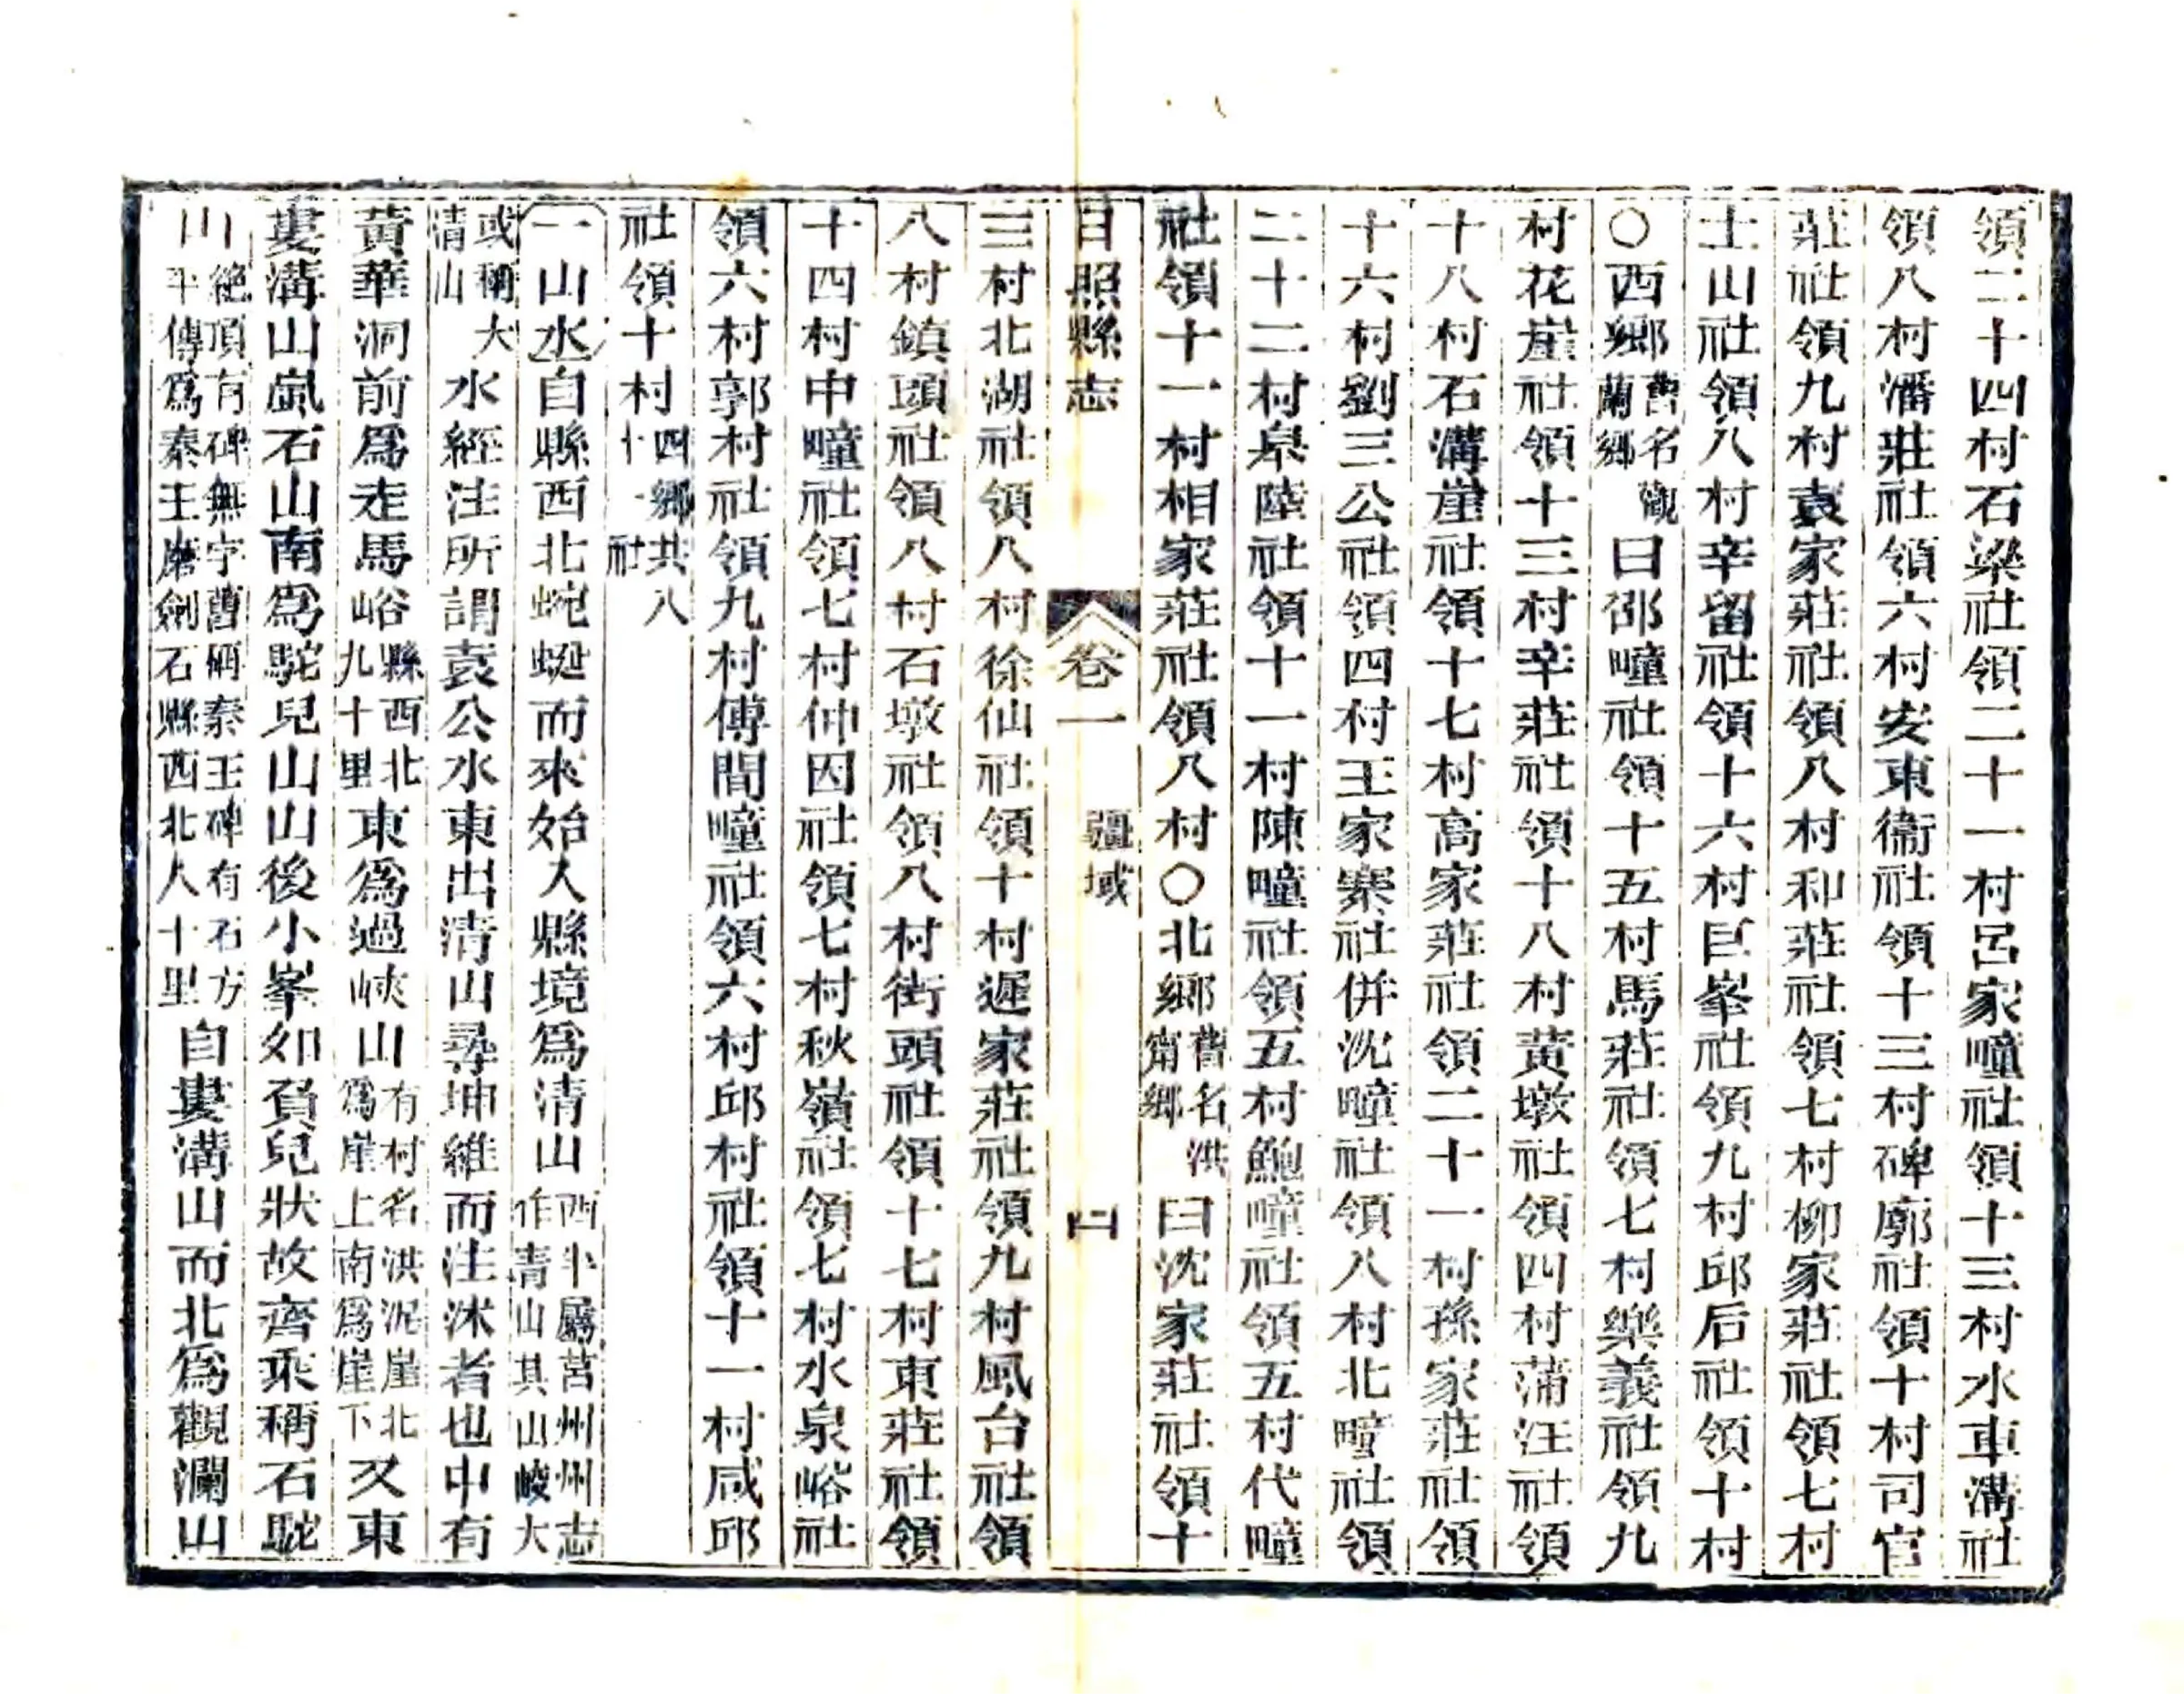 領二十四村石梁社領二十一村呂家疃社領十三村水車溝社
領八村潘莊社領六村安東衞社領十三村碑廓社領十村司官
莊社領九村袁家莊社領八村和莊社領七村柳家莊社領七村
土山社領八村辛留社領十六村巨峯社領九村邱后社領十村
○西鄉舊名觀蘭鄉曰邵疃社領十五村馬莊社領七村樂義社領九
村花崖社領十三村辛莊社領十八村黃墩社領四村蒲汪社領
十八村石溝崖社領十七村高家莊社領二十一村孫家莊社領
十六村劉三公社領四村王家寨社併沈疃社領八村北疃社領
二十二村泉陸社領十一村陳疃社領五村鮑疃社領五村代疃
社領十一村相家莊社領八村○北鄉舊名洪甯鄉曰沈家莊社領十
日照縣志 卷一 疆域 二
三村北湖社領八村徐仙社領十村遲家莊社領九村風台社領
八村鎮頭社領八村石墩社領八村街頭社領十七村東莊社領
十四村中疃社領七村仲因社領七村秋嶺社領七村水泉峪社
領六村郭村社領九村傅間疃社領六村邱村社領十一村咸邱
社領十村四鄉共八十一社
一山水自縣西北蛇蜒而來始入縣境爲清山西半屬莒州州志作青山其山峻大
或稱大清山水經注所謂袁公水東出清山尋坤維而注沭者也中有
黃華洞前爲走馬峪縣西北九十里東爲過峽山有村名洪泥崖北爲崖上南爲崖下又東
婁溝山嵐石山南爲駝兒山山後小峯如負兒狀故齊乘稱石駝
山絕頂有碑無字舊稱秦王碑有石方斗傳爲秦王磨劍石縣西北八十里自婁溝山而北爲觀瀾山